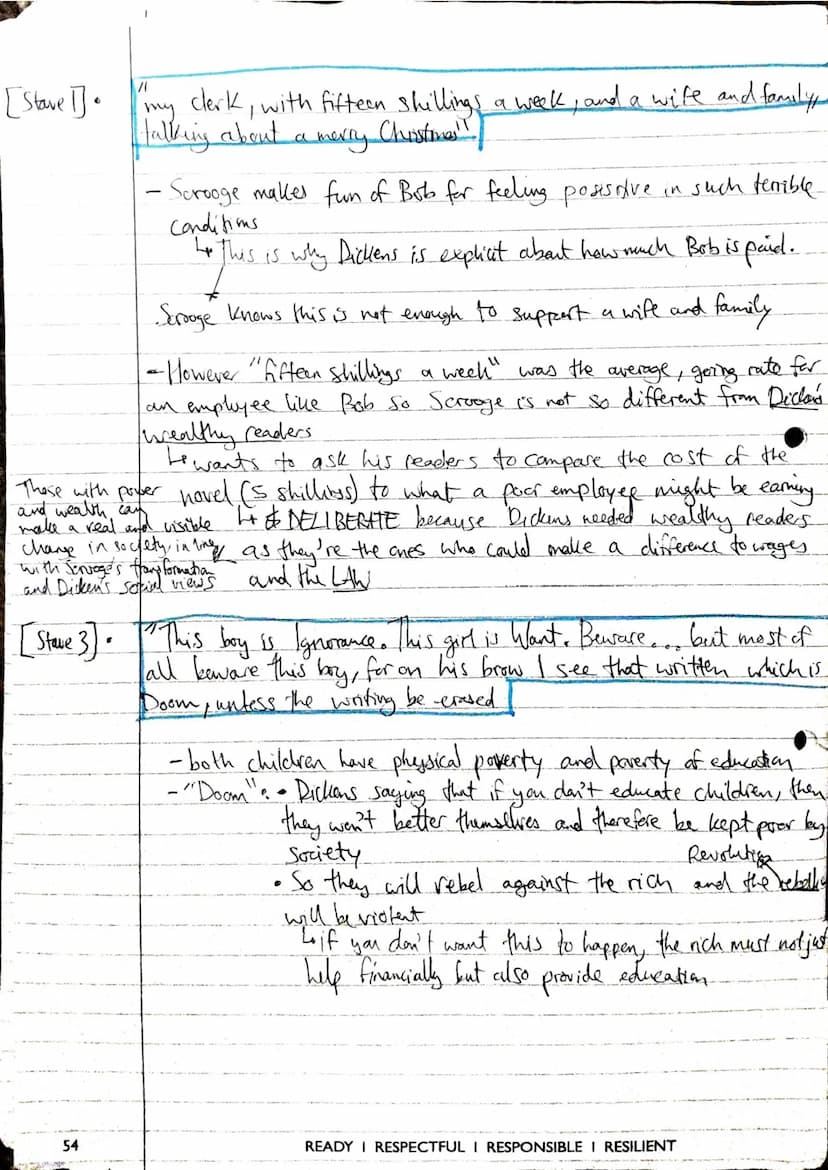 [Stave 1] • "my clerk, with fifteen shillings a week, and a wife and family,
talking about a merry Christmas".
- Scrooge makes fun of Bob for feeling posistive in such terrible
conditions
↳ This is why Dickens is explicit about how much Bob is paid.
Scrooge knows this is not enough to support a wife and family
- However "fifteen shillings a week" was the average, going rate for
an employee like Bob so Scrooge is not so different from Dicken's
wealthy readers
↳ wants to ask his readers to compare the cost of the
novel (5 shillings) to what a poor employee might be earning
↳ DELIBERATE because Dickens needed wealthy readers
as they're the ones who could make a difference to wages
and the LAW
Those with power
and wealth can
make a real and visible
change in society, in line
with Scrooge's transformation
and Dicken's social views
[Stave 3] • "This boy is Ignorance. This girl is Want. Beware... but most of
all beware this boy, for on his brow I see that written which is
Doom, unless the writing be erased
- both children have physical poverty and poverty of education
- "Doom": • Dickens saying that if you don't educate children, then
they won't better themselves and therefore be kept poor by
society
Revolution
• So they will rebel against the rich and the
will be violent
↳ if you don't want this to happen, the rich must not just
help financially but also provide education
54
READY | RESPECTFUL | RESPONSIBLE | RESILIENT